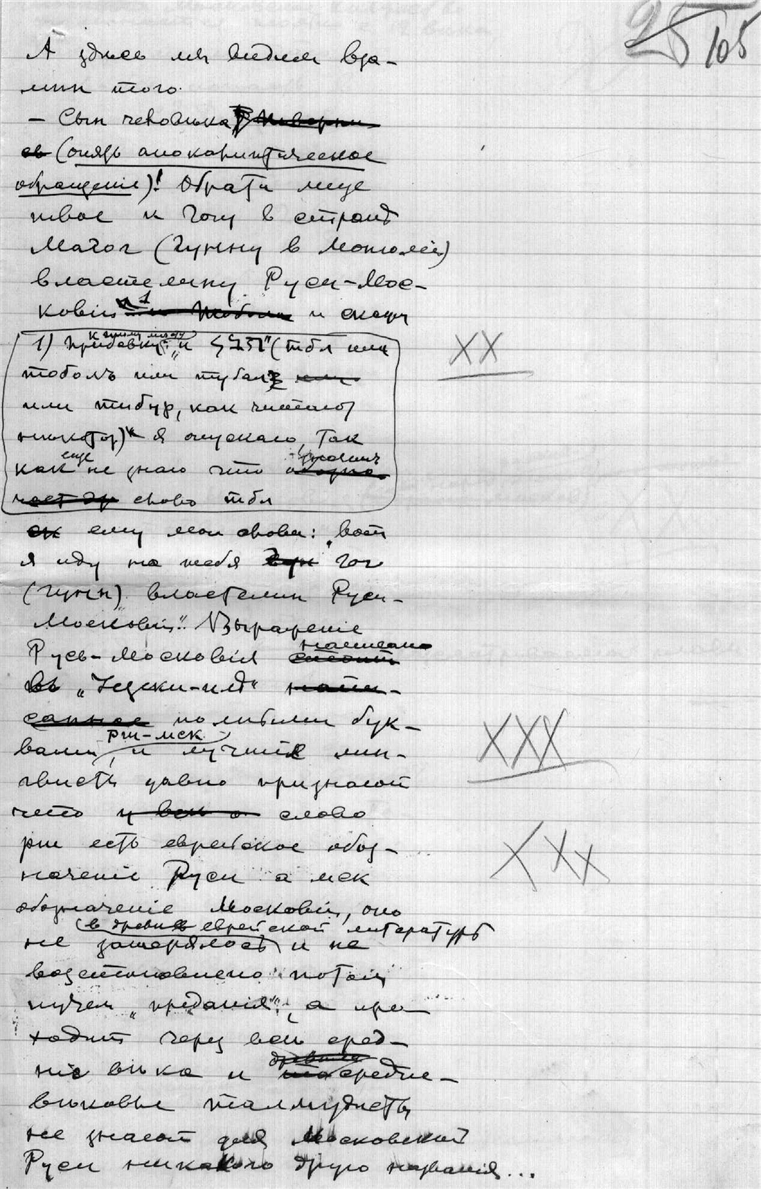 25 105
А здесь мы видим вза-
мин того.
— Сын человика
(опять апокалиптическое
обращеніе)! Обрати лице
твое к Гогу в странѣ
Магог (гунну в Монголіи)
властелину Руси-Мос-
ковіи 1 и скажи
1) Прибавку "и (тбл или
тоболъ или тубал
или тибур, как читают
некотор) я опускаю, так
как еще не знаю что
слово тбл
ему мои слова: "вот
я иду на тебя Гог
(гунн) властелин Руси-
Московіи". Выраженіе
Русь-Московія написано
въ
по имени бук-
вами рш-мск, и лучшіе лин-
гвисты давно признают
что слово
рш есть еврейское обоз-
наченіе Руси а мск
обозначеніе Московіи, оно
в древней еврейской литературѣ
не затерялось и не
возстановлено потом
путем "преданія", а про
ходит через всѣ сред-
ніе вика и средне-
виковые талмудисты
не знают для Московской
Руси никакого друго названія...
XX
XXX
XXX